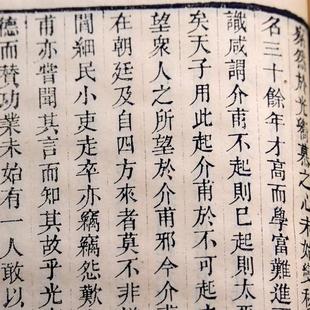 然於光嚮慕之心未始變移
名三十餘年才高而學富難進
識咸謂介甫不起則已起則太
矣天子用此起介甫於不可起
望衆人之所望於介甫邪今介
在朝廷及自四方來者莫不非
閻細民小吏走卒亦竊竊怨歎
甫亦嘗聞其言而知其故乎光
德而贊功業未始有一人敢以